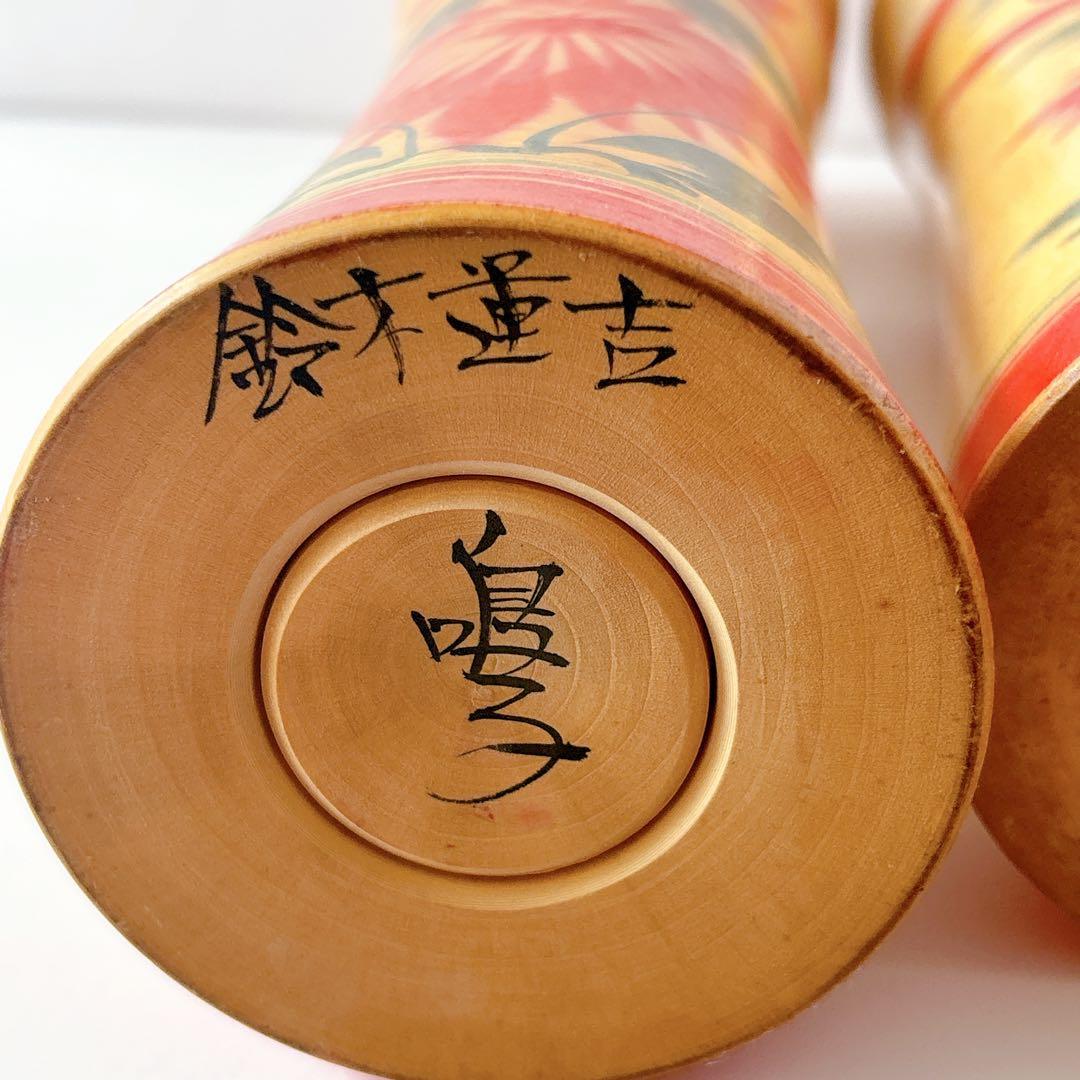 鈴木運吉
鳴子